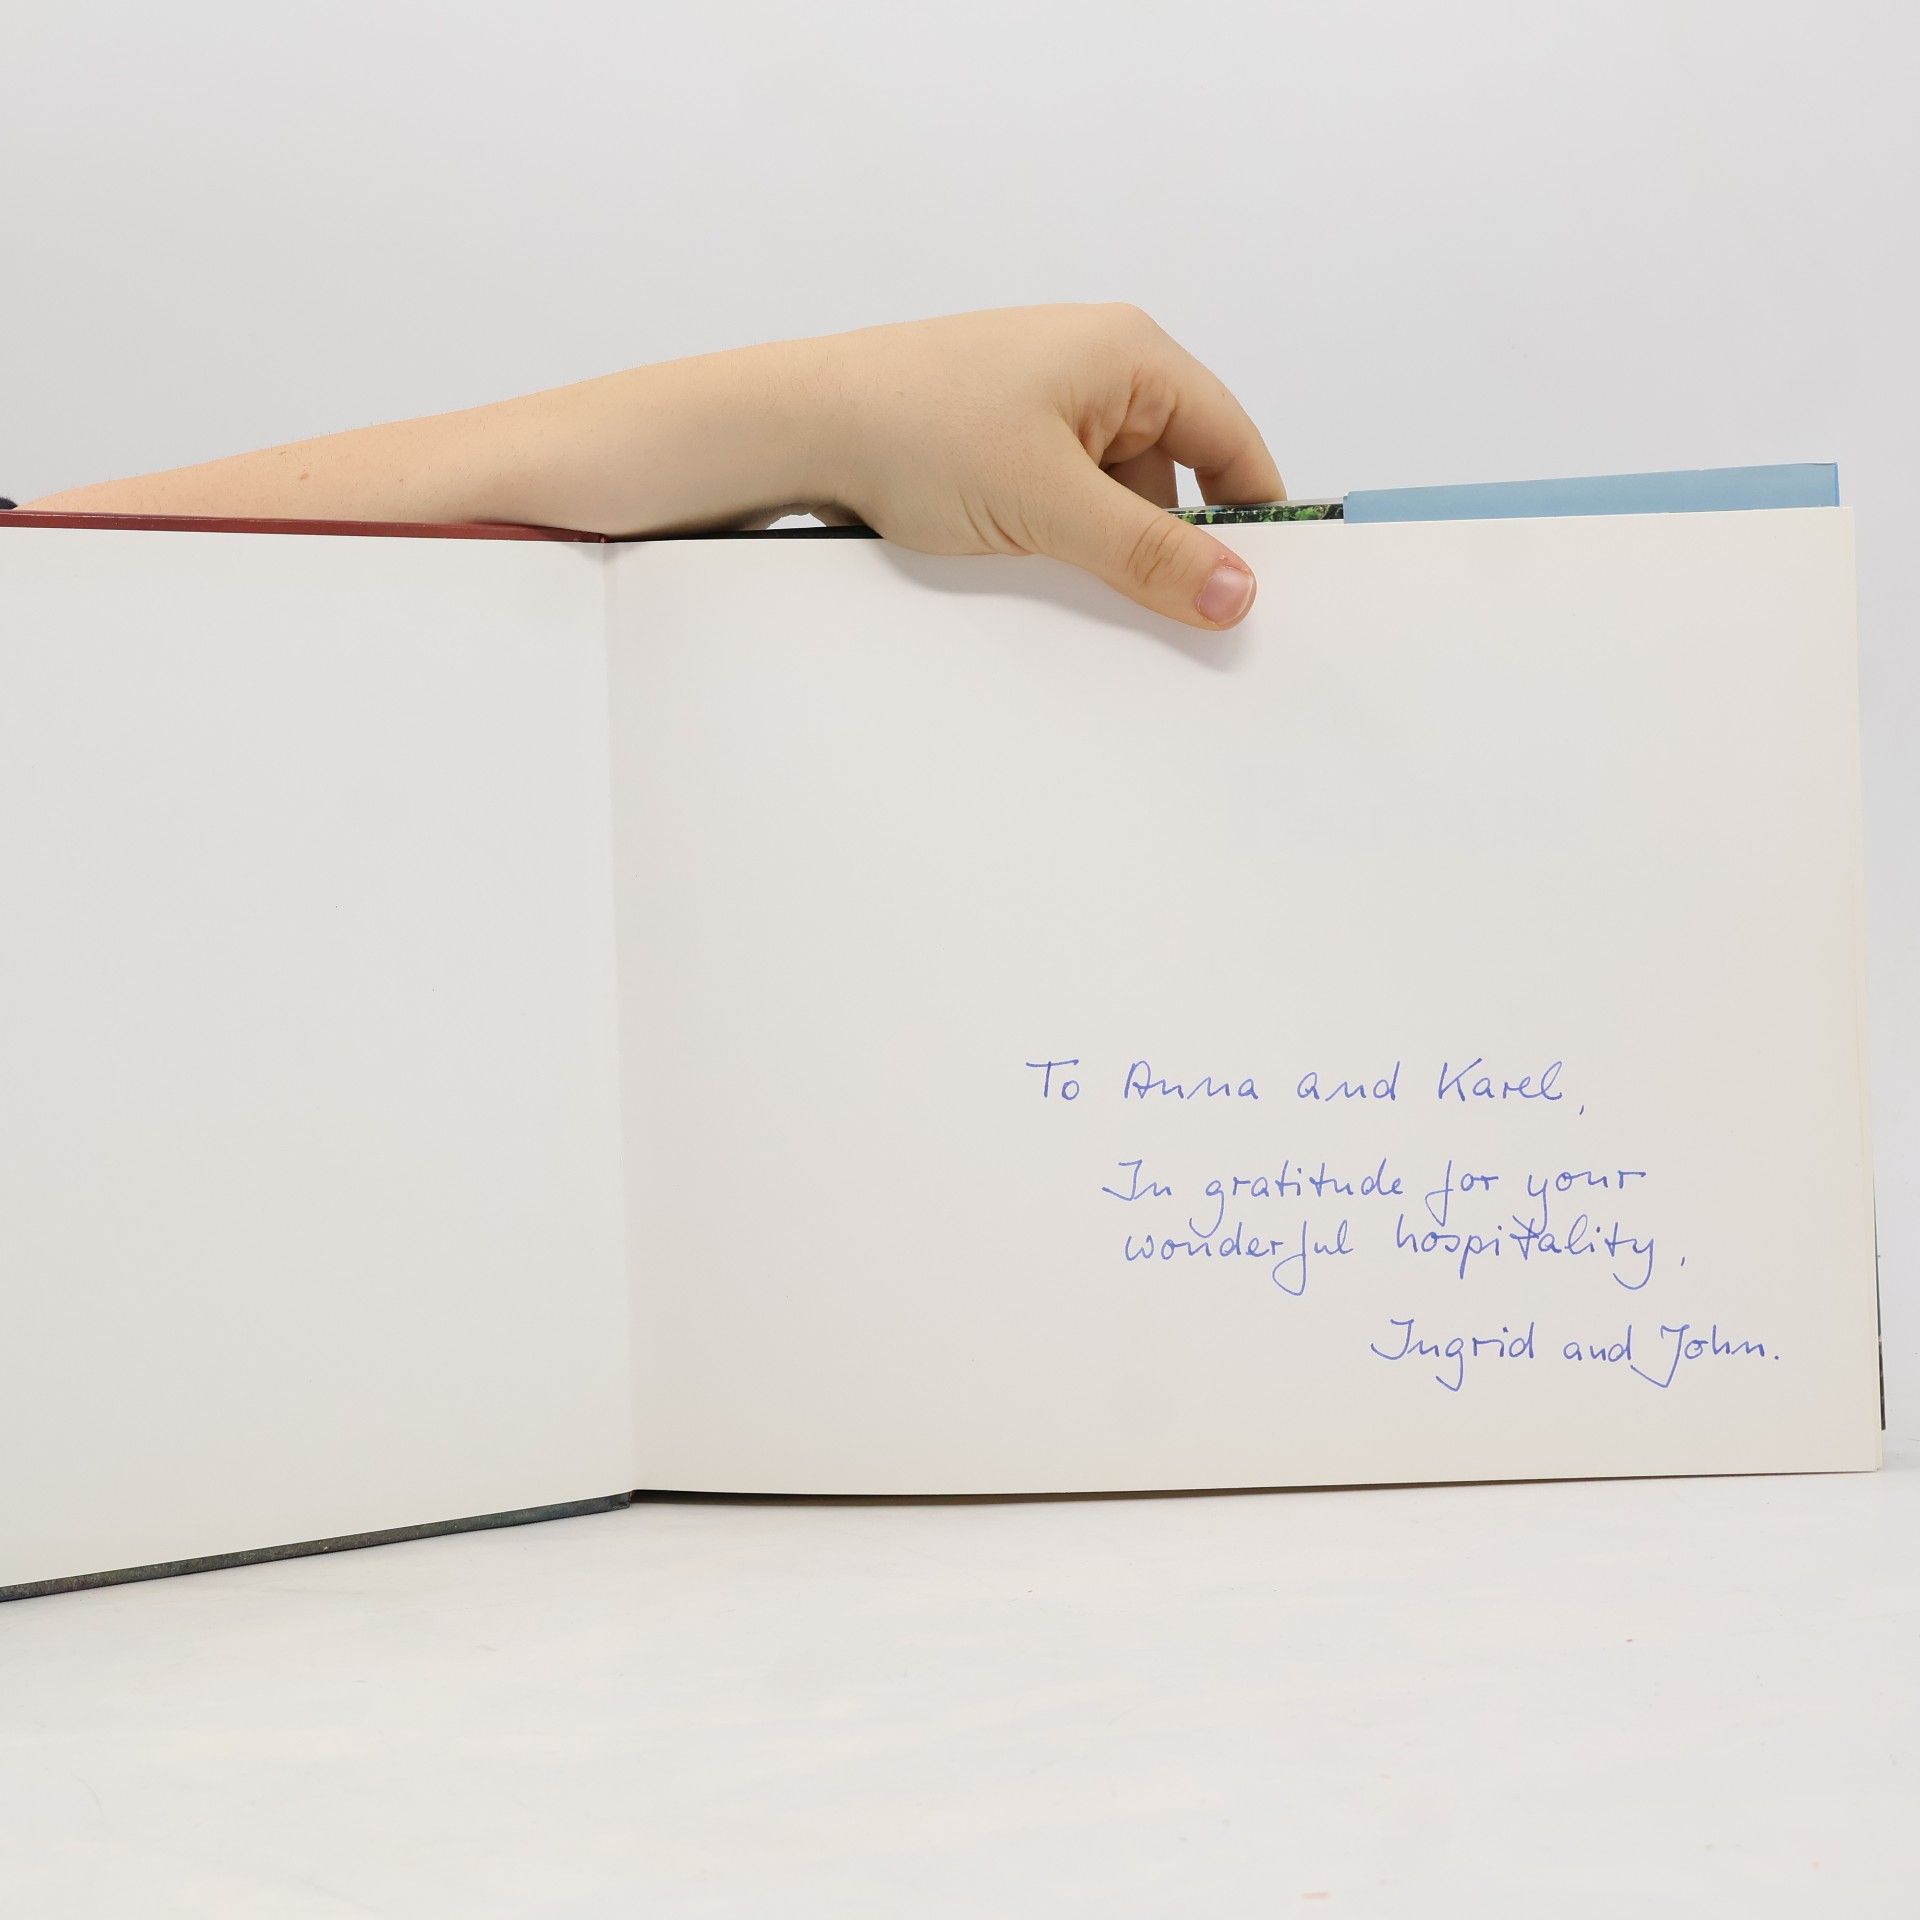 To Anna and Karel,
In gratitude for your
wonderful hospitality,
Ingrid and John.